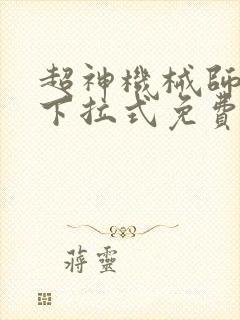 超神機械師
下拉式免費
蔣靈